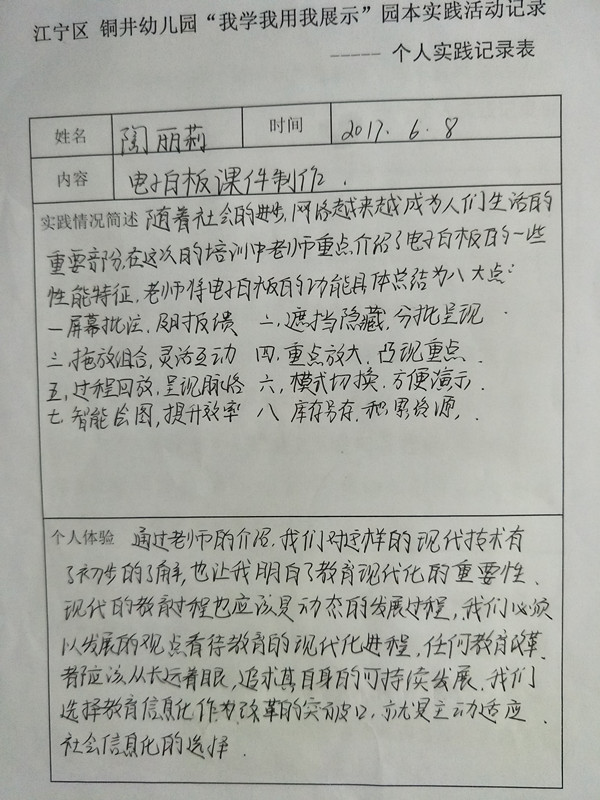 江宁区 铜井幼儿园“我学我用我展示”园本实践活动记录
----- 个人实践记录表
姓名 陶丽莉 时间 2017.6.8
内容 电子白板课件制作.
实践情况简述 随着社会的进步,网络越来越成为人们生活的
重要部分,在这次的培训中老师重点介绍了电子白板的一些
性能特征,老师将电子白板的功能具体总结为八大点:
一屏幕批注,及时反馈 二,遮挡隐藏,分批呈现
三,拖放组合,灵活互动 四,重点放大,凸现重点.
五,过程回放,呈现脉络 六,模式切换,方便演示.
七 智能绘图,提升效率 八 库存另存,积累资源,.
个人体验 通过老师的介绍,我们对这样的现代技术有
了初步的了解,也让我明白了教育现代化的重要性.
现代的教育过程也应该是动态的发展过程,我们必须
以发展的观点看待教育的现代化进程,任何教育改革
都应该从长远着眼,追求其自身的可持续发展.我们
选择教育信息化作为改革的突破口,亦是主动适应
社会信息化的选择.